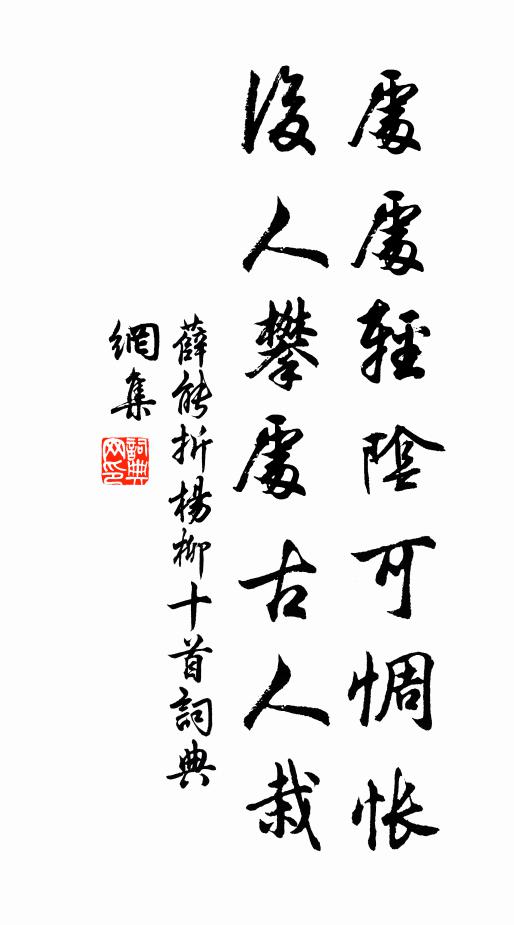 處處輕陰可惆悵
後人攀處古人栽
薛能折楊柳十首詞典
網集
詞典
网印